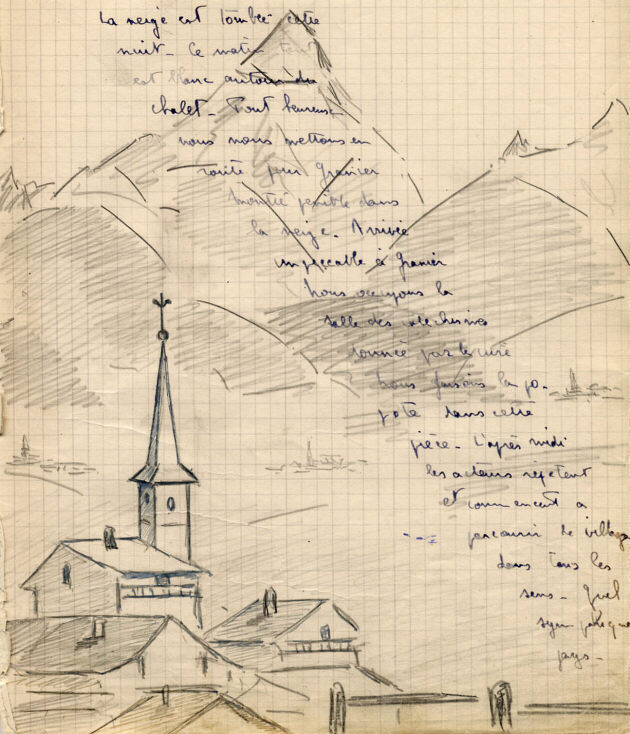 La neige est tombée cette
nuit - Ce matin tout
est blanc autour du
chalet - Tout heureux
nous nous mettons en
route pour Granier
montée penible dans
la neige. Arrivée
impeccable à Granier
Nous occupons la
salle des catechismes
donnée par le curé
nous faisons la po-
pote dans cette
pièce - L'après midi
les acteurs répètent
et commencent a
parcourir le village
dans tous les
sens - Quel
sympathique
pays -